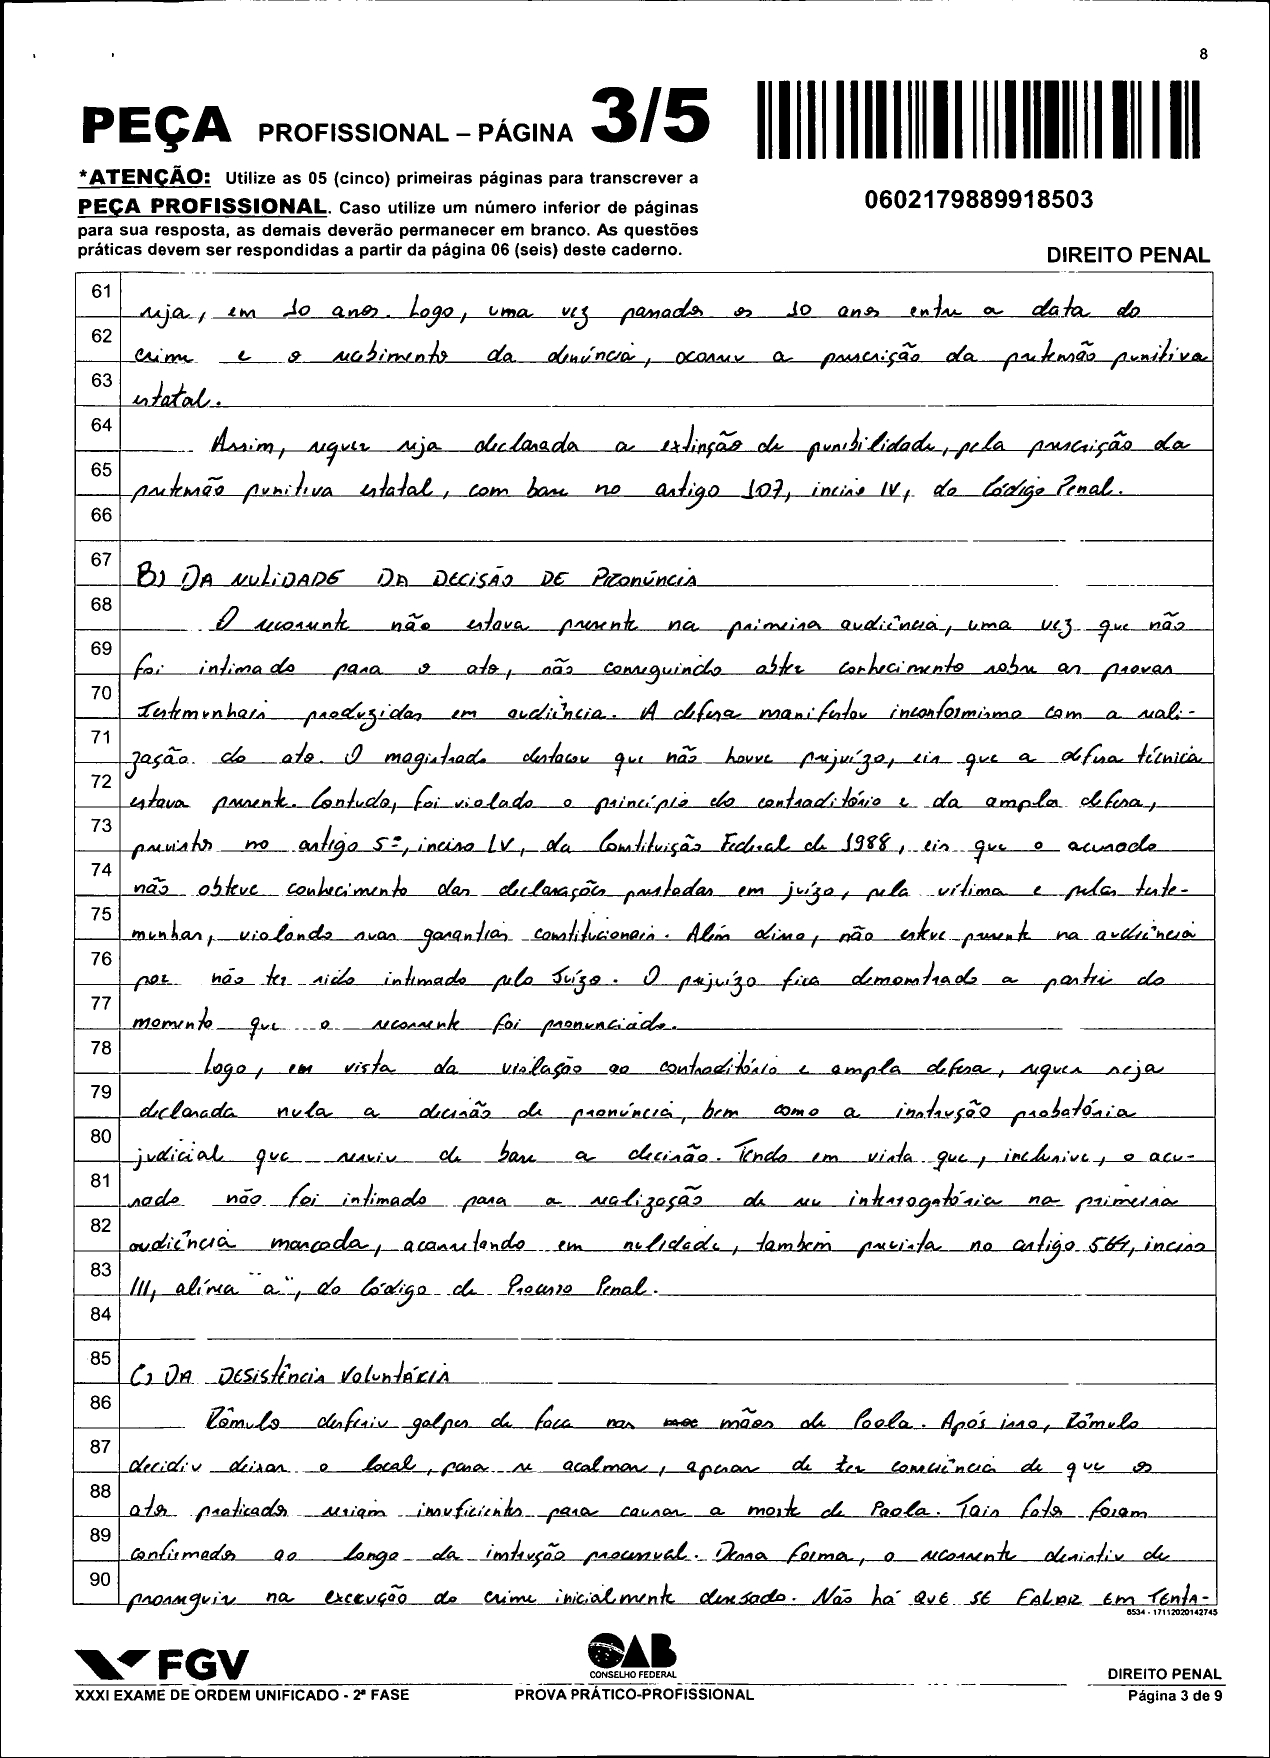 8
PEÇA PROFISSIONAL – PÁGINA 3/5
*ATENÇÃO: Utilize as 05 (cinco) primeiras páginas para transcrever a
PEÇA PROFISSIONAL. Caso utilize um número inferior de páginas
para sua resposta, as demais deverão permanecer em branco. As questões
práticas devem ser respondidas a partir da página 06 (seis) deste caderno.
0602179889918503
DIREITO PENAL
61 seja, em 10 anos. Logo, uma vez passados os 10 anos entre a data do
62 crime e o recebimento da denúncia, ocorreu a prescrição da pretensão punitiva
63 estatal.
64 Assim, requer seja declarada a extinção de punibilidade, pela prescrição da
65 pretensão punitiva estatal, com base no artigo 107, inciso IV, do Código Penal.
66
67 B) DA NULIDADE DA DECISÃO DE PRONÚNCIA
68 O recorrente não estava presente na primeira audiência, uma vez que não
69 foi intimado para o ato, não conseguindo obter conhecimento sobre as provas
70 testemunhais produzidas em audiência. A defesa manifestou inconformismo com a reali-
71 zação do ato. O magistrado destacou que não houve prejuízo, eis que a defesa técnica
72 estava presente. Contudo, foi violado o princípio do contraditório e da ampla defesa,
73 previstos no artigo 5º, inciso LV, da Constituição Federal de 1988, eis que o acusado
74 não obteve conhecimento das declarações prestadas em juízo, pela vítima e pelas teste-
75 munhas, violando suas garantias constitucionais. Além disso, não esteve presente na audiência
76 por não ter sido intimado pelo Juízo. O prejuízo fica demonstrado a partir do
77 momento que o recorrente foi pronunciado.
78 Logo, em vista da violação ao contraditório e ampla defesa, requer seja
79 declarada nula a decisão de pronúncia, bem como a instrução probatória
80 judicial que serviu de base a decisão. Tendo em vista que, inclusive, o acu-
81 sado não foi intimado para a realização de seu interrogatório na primeira
82 audiência marcada, acarretando em nulidade, também prevista no artigo 564, inciso
83 III, alínea "a", do Código de Processo Penal.
84
85 C) DA DESISTÊNCIA VOLUNTÁRIA
86 Rômulo desferiu golpes de faca nas mãos de Paola. Após isso, Rômulo
87 decidiu deixar o local, para se acalmar, apesar de ter consciência de que os
88 atos praticados seriam insuficientes para causar a morte de Paola. Tais fatos foram
89 confirmados ao longo da instrução processual. Dessa forma, o recorrente desistiu de
90 prosseguir na execução do crime inicialmente desejado. Não há QUE SE FALAR EM TENTA-
6534 - 17112020142745
FGV
XXXI EXAME DE ORDEM UNIFICADO - 2ª FASE
OAB
CONSELHO FEDERAL
PROVA PRÁTICO-PROFISSIONAL
DIREITO PENAL
Página 3 de 9